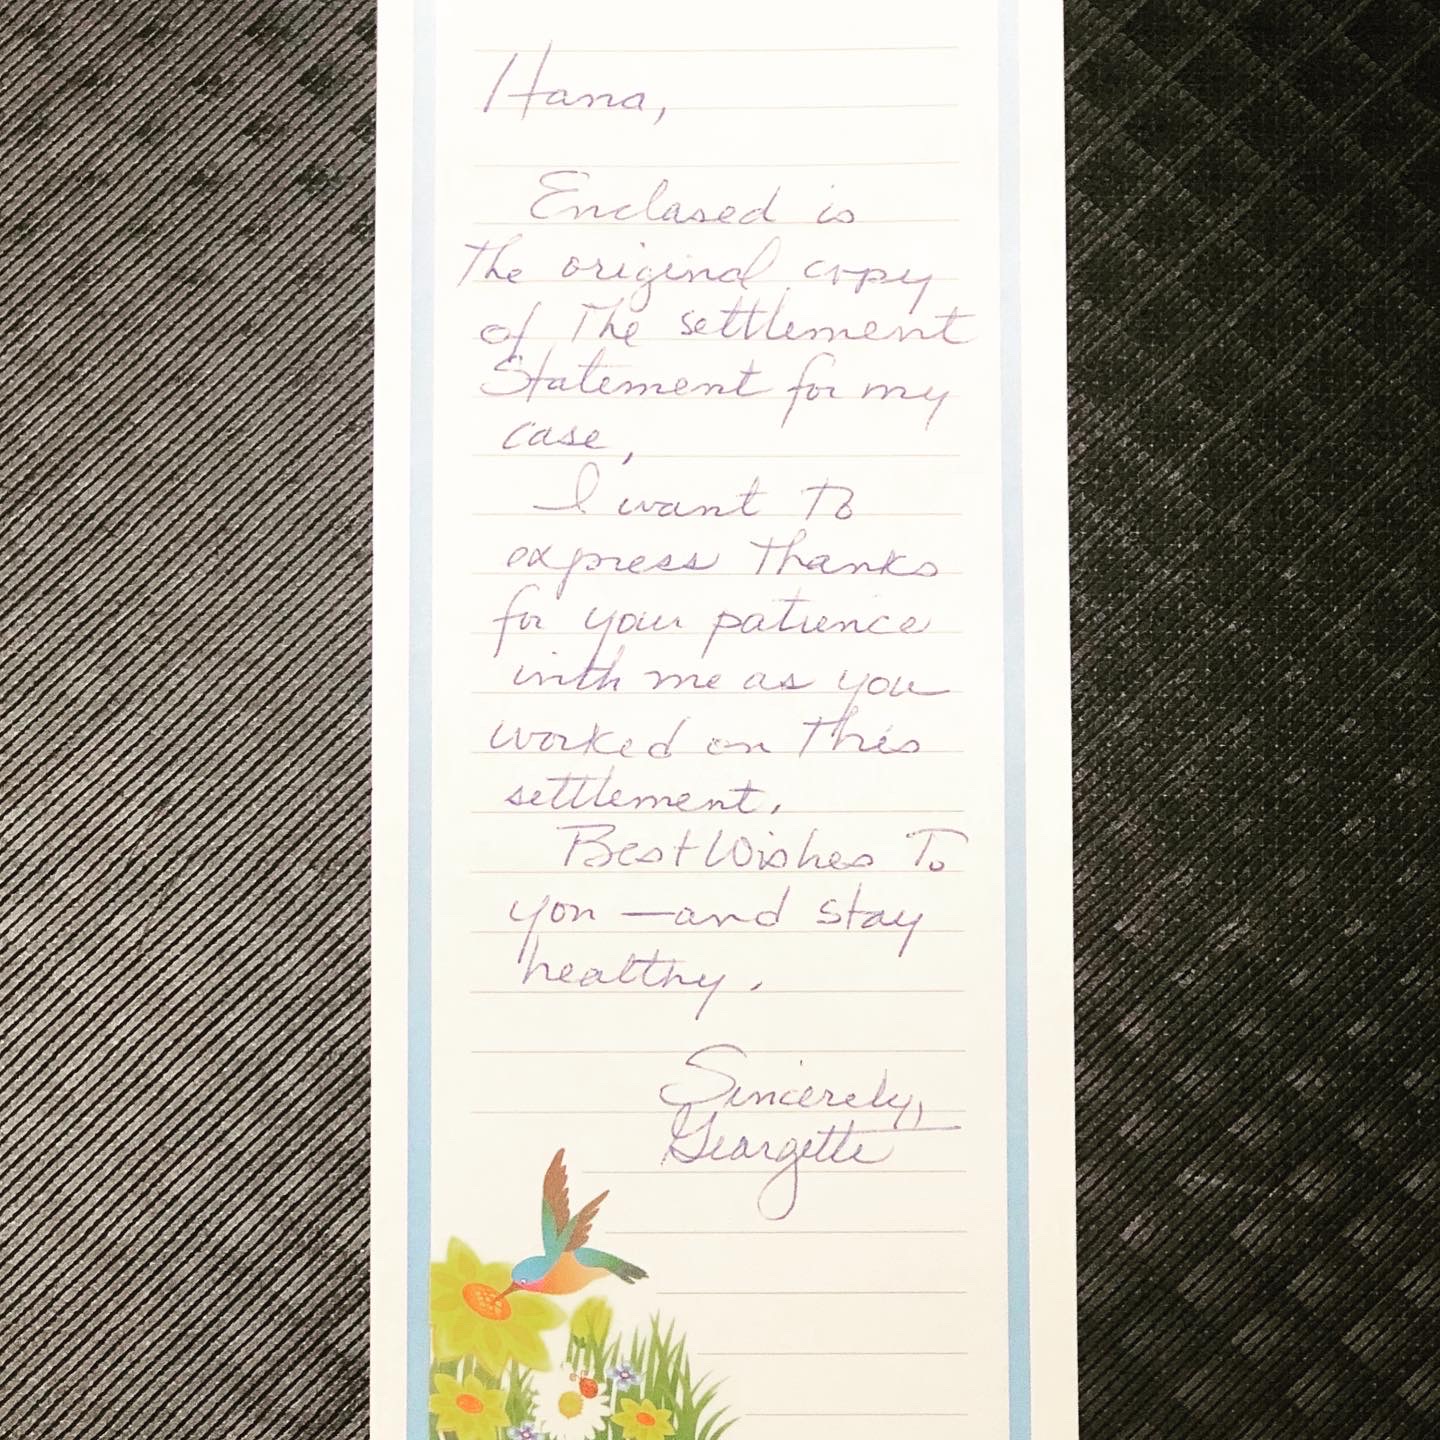 Hana,
Enclosed is
the original copy
of the settlement
Statement for my
case,
I want to
express thanks
for your patience
with me as you
worked on this
settlement.
Best Wishes To
you — and stay
healthy.
Sincerely,
Georgette